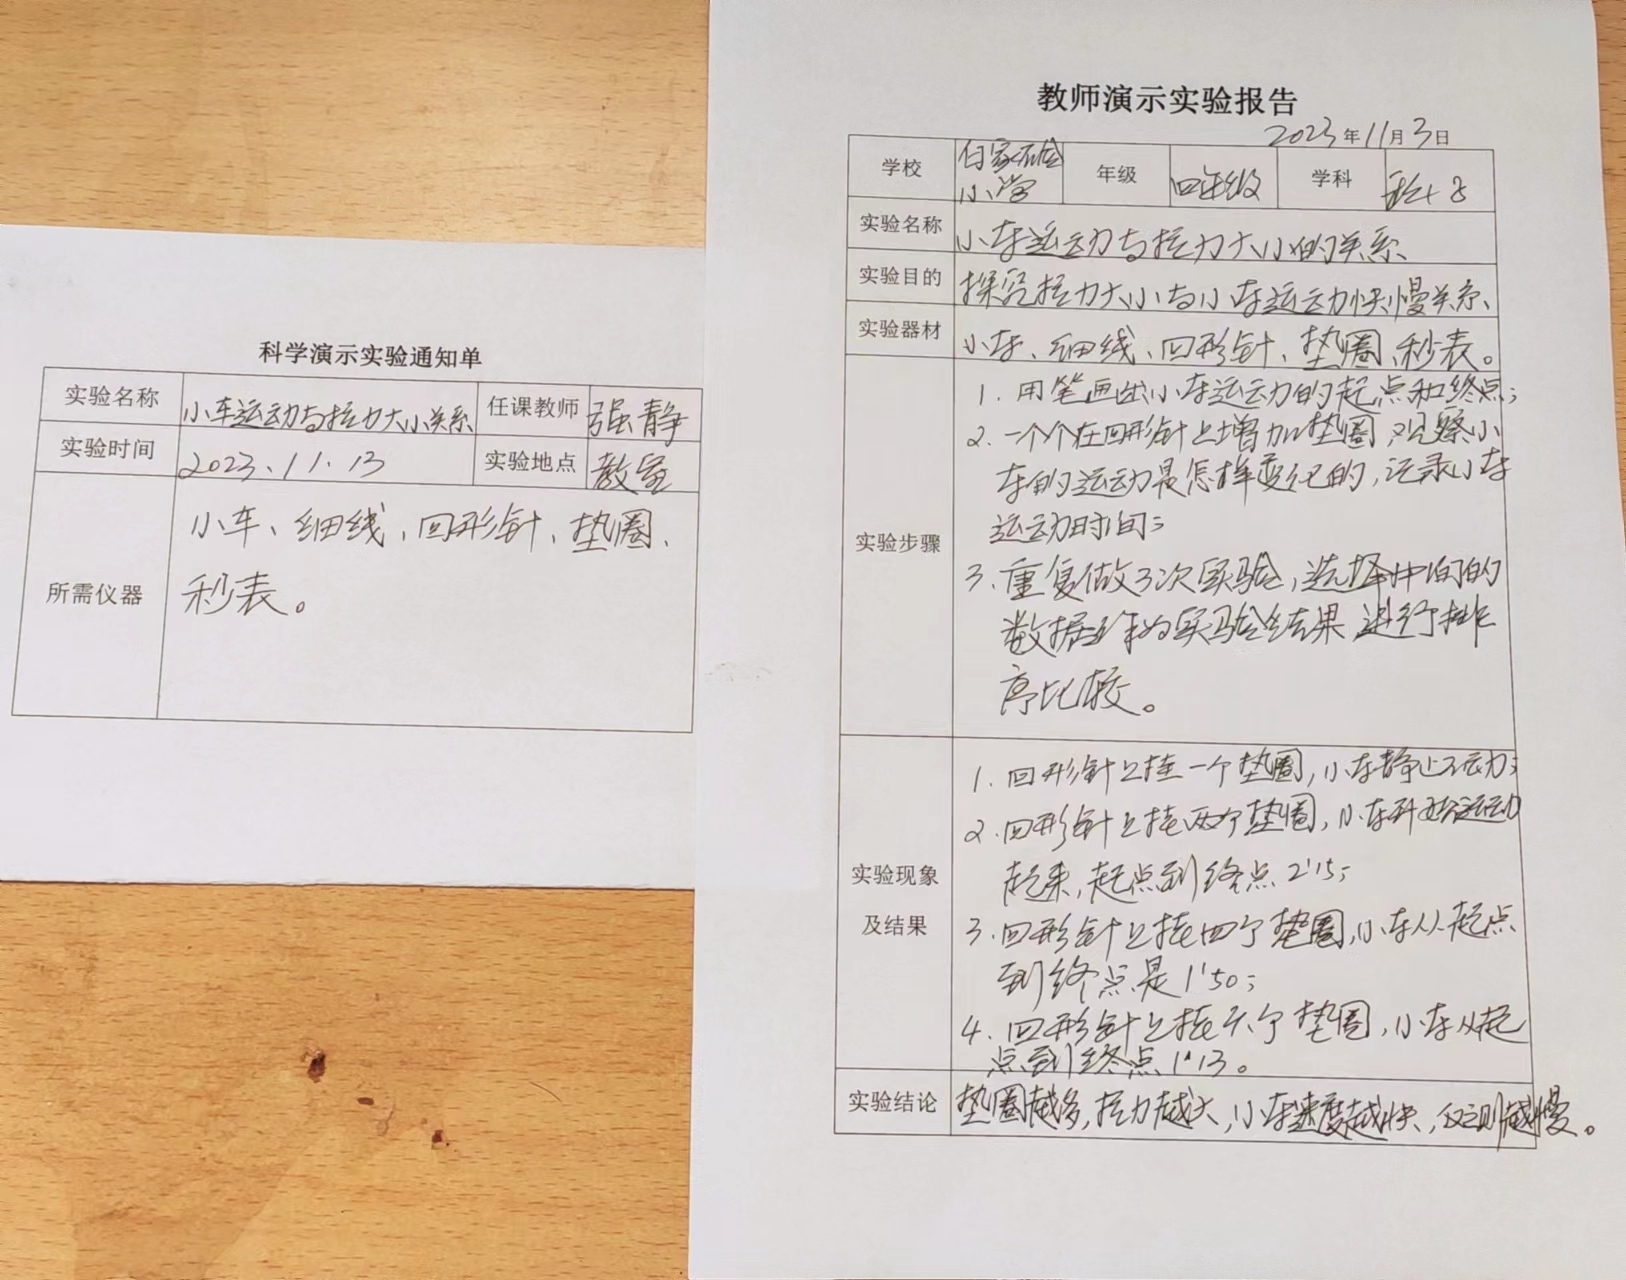 科学演示实验通知单
实验名称 小车运动与拉力大小关系 任课教师 强静
实验时间 2023.11.13 实验地点 教室
所需仪器
小车、细线、回形针、垫圈、
秒表。
教师演示实验报告
2023年11月3日
学校 小学 年级 四年级 学科 科学
实验名称 小车运动与拉力大小的关系
实验目的 探究拉力大小与小车运动快慢关系、
实验器材 小车、细线、回形针、垫圈、秒表。
实验步骤
1.用笔画出小车运动的起点和终点;
2.一个个在回形针上增加垫圈,观察小
车的运动是怎样变化的,记录小车
运动时间;
3.重复做3次实验,选择中间的
数据作为实验结果进行排
序比较。
实验现象
及结果
1.回形针上挂一个垫圈,小车静止不动;
2.回形针上挂两个垫圈,小车开始运动
起来,起点到终点2'15;
3.回形针上挂四个垫圈,小车从起点
到终点是1'50;
4.回形针上挂六个垫圈,小车从起
点到终点1'13。
实验结论 垫圈越多,拉力越大,小车速度越快,反之则越慢。